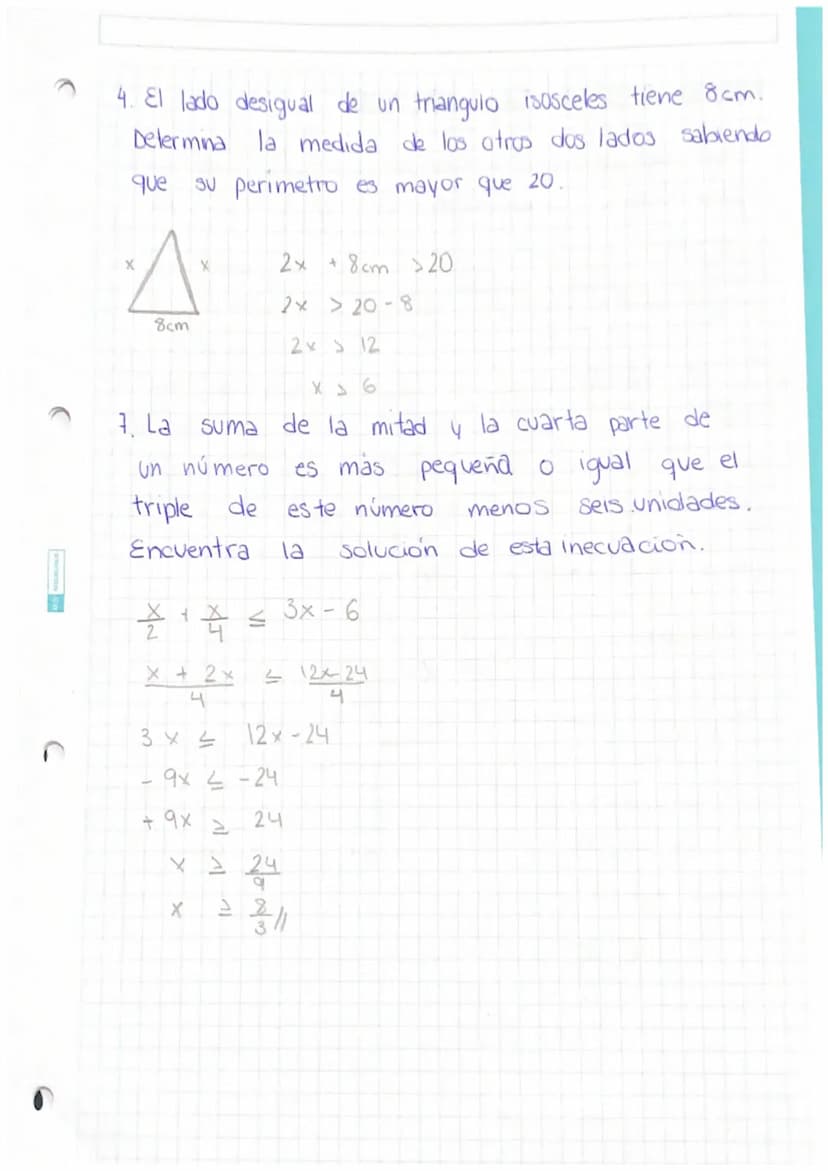 4. El lado desigual de un triangulo isosceles tiene 8cm.
Determina la medida de los otros dos lados sabiendo
que su perimetro es mayor que 20.
x x
8cm
2x + 8cm > 20
2x > 20 - 8
2x > 12
x > 6
7. La suma de la mitad y la cuarta parte de
un número es más pequeña o igual que el
triple de este número menos seis unidades.
Encuentra la solución de esta inecuación.
x/2 + x/4 ≤ 3x - 6
x + 2x/4 ≤ 12x - 24/4
3x ≤ 12x - 24
- 9x ≤ - 24
+ 9x ≥ 24
x ≥ 24/9
x ≥ 8/3 //